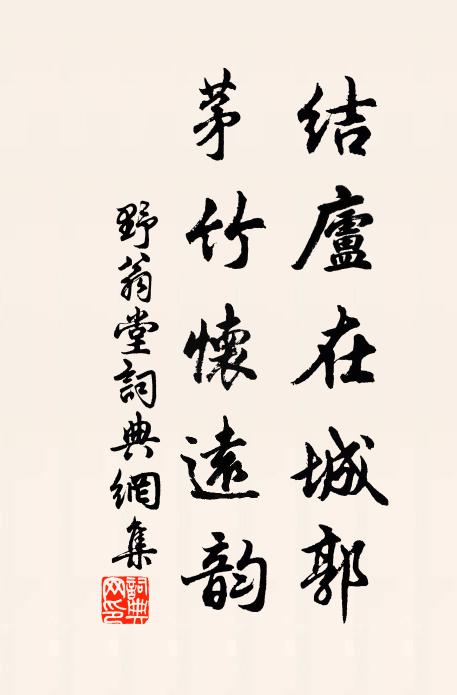 结廬在城郭
茅竹懷遠韵
野翁堂詞典網集
詞典
网印